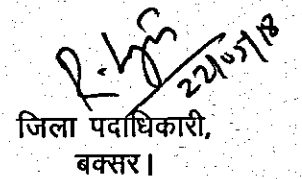 22/05/18
जिला पदाधिकारी,
बक्सर।